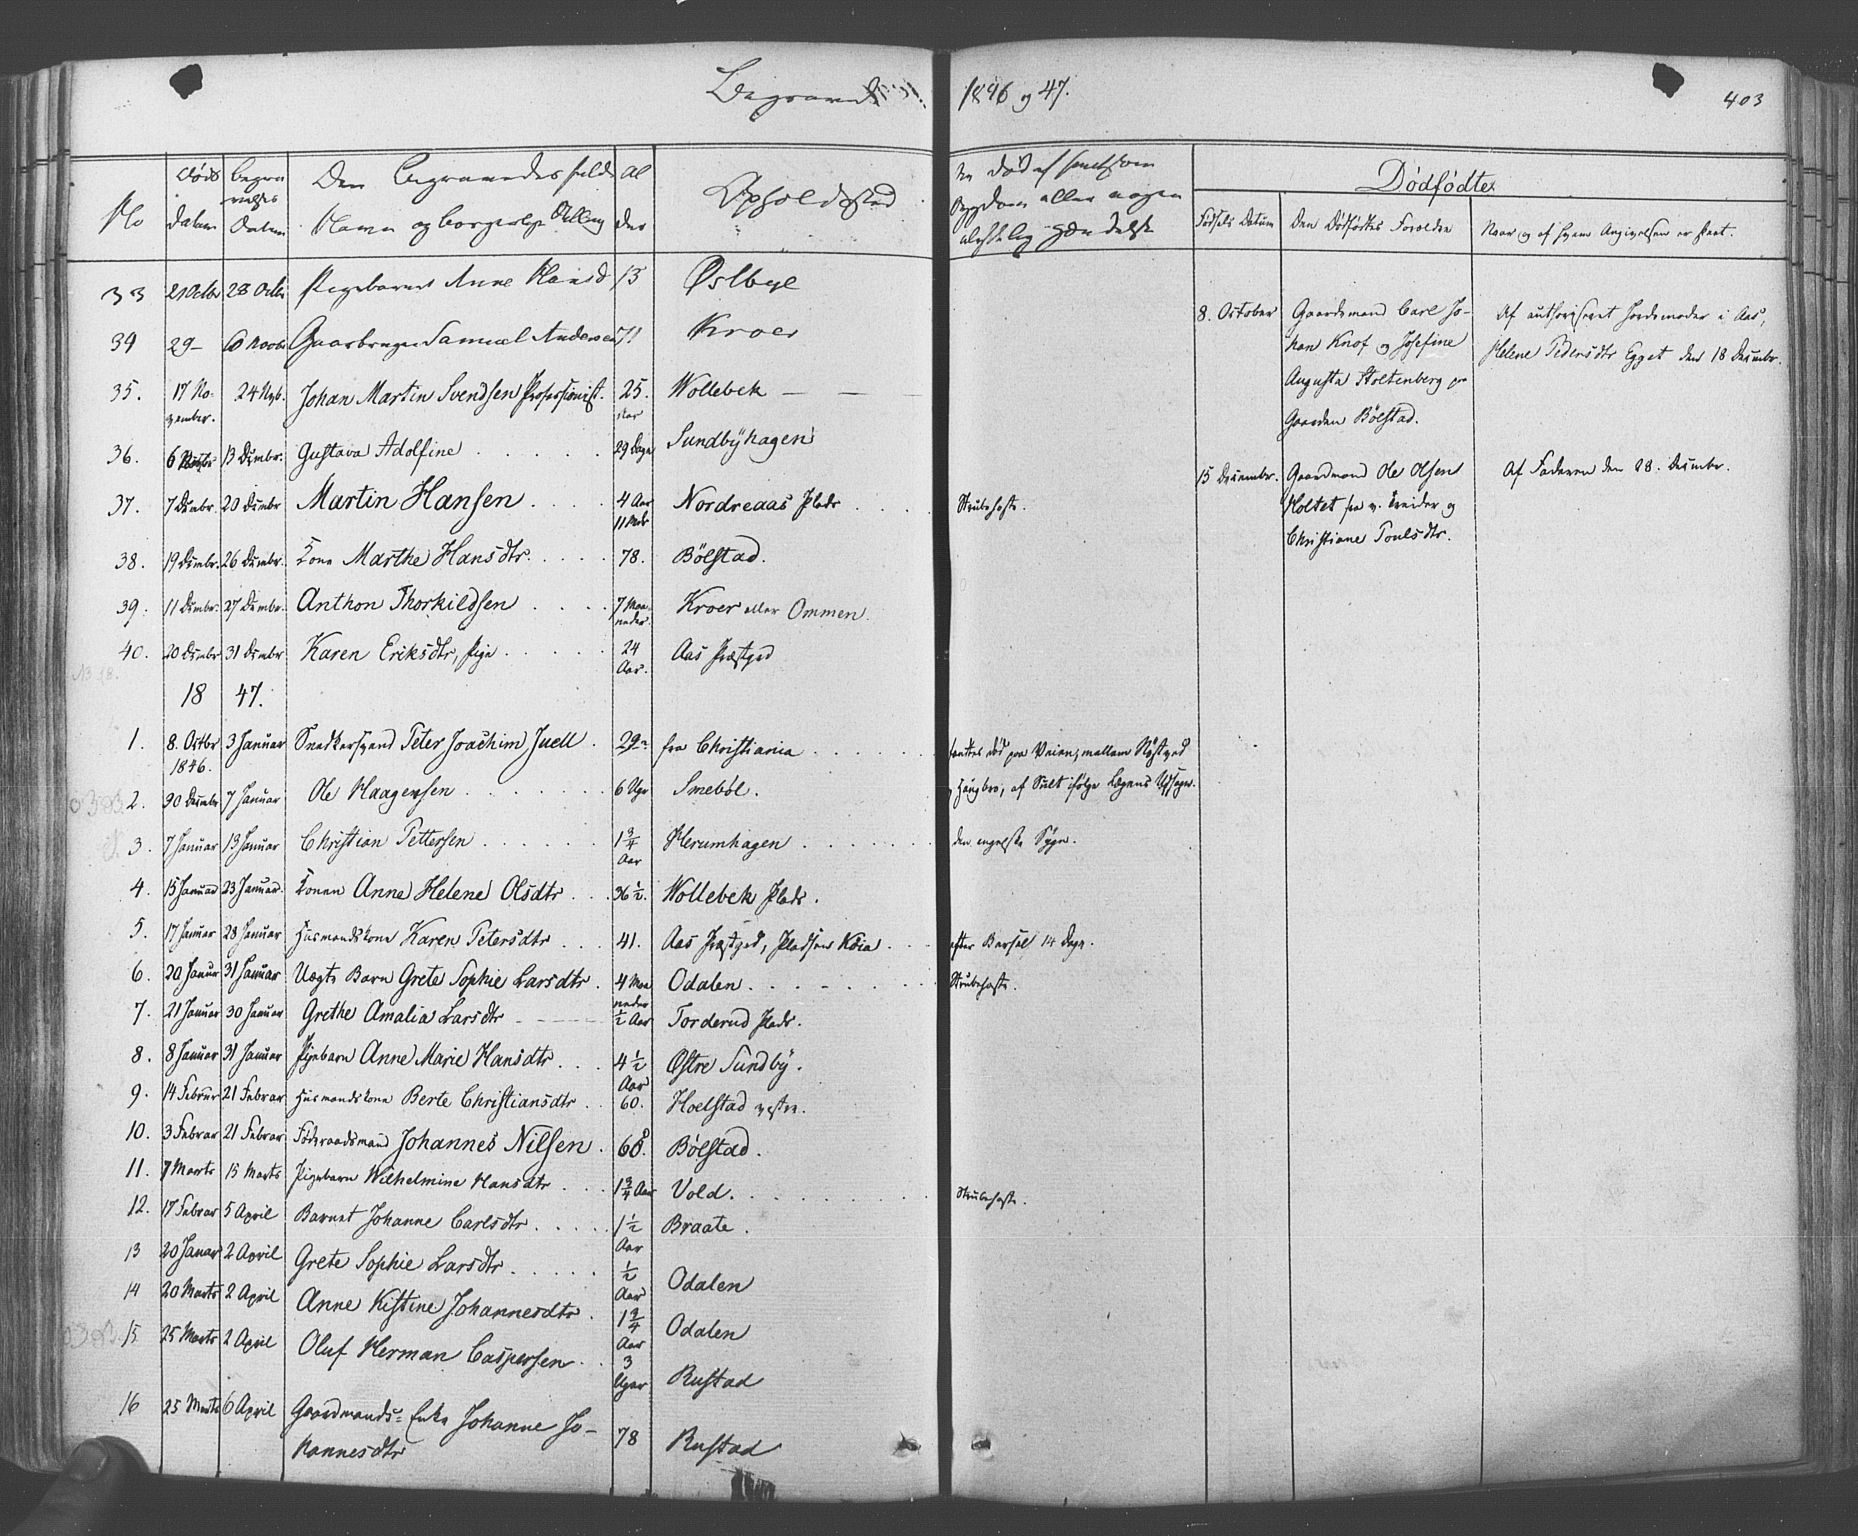 Begravede 1846 og 47. 403
No
Døds Datum
Begravelses Datum
Den Begravedes fulde Navn og borgerlige Stilling
Alder
Opholdsted
Dødfødte
Fødsels Datum
Den Dødfødtes Forældre
Naar og af hvem Angivelsen er skeet.
33 21 Octbr 28 Octbr Pigebarnet Anne Hansd 13 Østbye
34 29 – Gaarbruger Samuel Andersen 71 Kroer
35. 17 November. 24 Nvb. Johan Martin Svendsen Professionist. 25. Aar Wollebek — —
36. 6 13 Dsmbr. Gustava Adolfine . . . . . 29 Dage Sundbyhagen
37. 7 Dsmbr. 20 Dsmbr Martin Hansen . . . . 4 Aar 11 Mdr Nordreaas Plads . . . Strubehoste.
38. 19 Dsmbr. 26 Dsmbr. Kone Marthe Hansdtr. . . . . 78. Bölstad.
39. 11 Dsmbr. 27 Dsmbr. Anthon Thorkildsen . . . . 7 Maaneder. Kroer eller Ommen.
40. 20 Dsmbr 31 Dsmbr Karen Eriksdtr, Pige . . . . . 24 Aar. Aas Præstgrd
18 47.
1. 8. Octbr 1846. 3 Januar Snedkersvend Peter Joachim Juell . 29 fra Christiania . . . . . . fandtes død paa Veien, mellem Nÿstved
og Haugbro, af Sult ifølge Lægens Udsagn.
2. 30 Dsmbr 7 Januar Ole Haagensen . . . . . . . 6 Uger Smebøl.
3. 7 Januar 13 Januar Christian Pettersen . . . . . . 1 3/4 Aar Kerumhagen . . . . . . den engelske Syge.
4. 15 Januar 23 Januar. Konen Anne Helene Olsdtr . . . 36 1/2. Wollebek Plads.
5. 17 Januar 28 Januar Husmandskone Karen Petersdtr . . . 41. Aas Præstgrd, Pladsen Kdia . . . efter Barsel 14 Dage.
6. 20 Januar 31 Januar Uægte Barn Grete Sophie Larsdtr . 4 Maaneder Odalen . . . . . . . Strubehoste.
7. 21 Januar 30 Januar Grethe Amalia Larsdtr - - - - - 1/2 Aar Torderud Plads.
8. 8 Januar 31 Januar Pigebarn Anne Marie Hansdtr . . . 4 1/2 Aar Østre Sundby.
9. 14 Februar 21 Februar Husmandskone Berte Christiansdtr . . 60. Hoelstad vestre.
10. 3 Februar 21 Februar Föderaadsmand Johannes Nilsen . 68. Bølstad.
11. 7 Marts 15 Marts Pigebarn Wilhelmine Hansdtr . . . 1 3/4 Aar Vold . . . . . . . . Strubehoste.
12. 17 Februar 5 April Barnet Johanne Carlsdtr . . . . . 1 1/2 Aar Braate.
13 20 Januar 2 April Grete Sophie Larsdtr . . . . . 1/2 Aar Odalen
14 20 Marts 2 April Anne Kistine Johannesdtr . 1 3/4 Aar Odalen
15 25 Marts 2 April Oluf Herman Caspersen . . 3 Uger Rustad
16 25 Marts 6 April Gaardmands-Enke Johanne Jo-
hannesdtr 78 Rustad
8. October
Gaardmand Carl Jo-
han Knof og Josefine
Augusta Stoltenberg paa
Gaarden Bölstad.
Af authoriseret Jordemoder i Aas,
Helene Pedersdtr Egget den 18 Dsmbr.
15 December.
Gaardmand Ole Olsen
Holtet fra og
Christiane Poulsdtr.
Af Faderen den 28. Dsmbr.